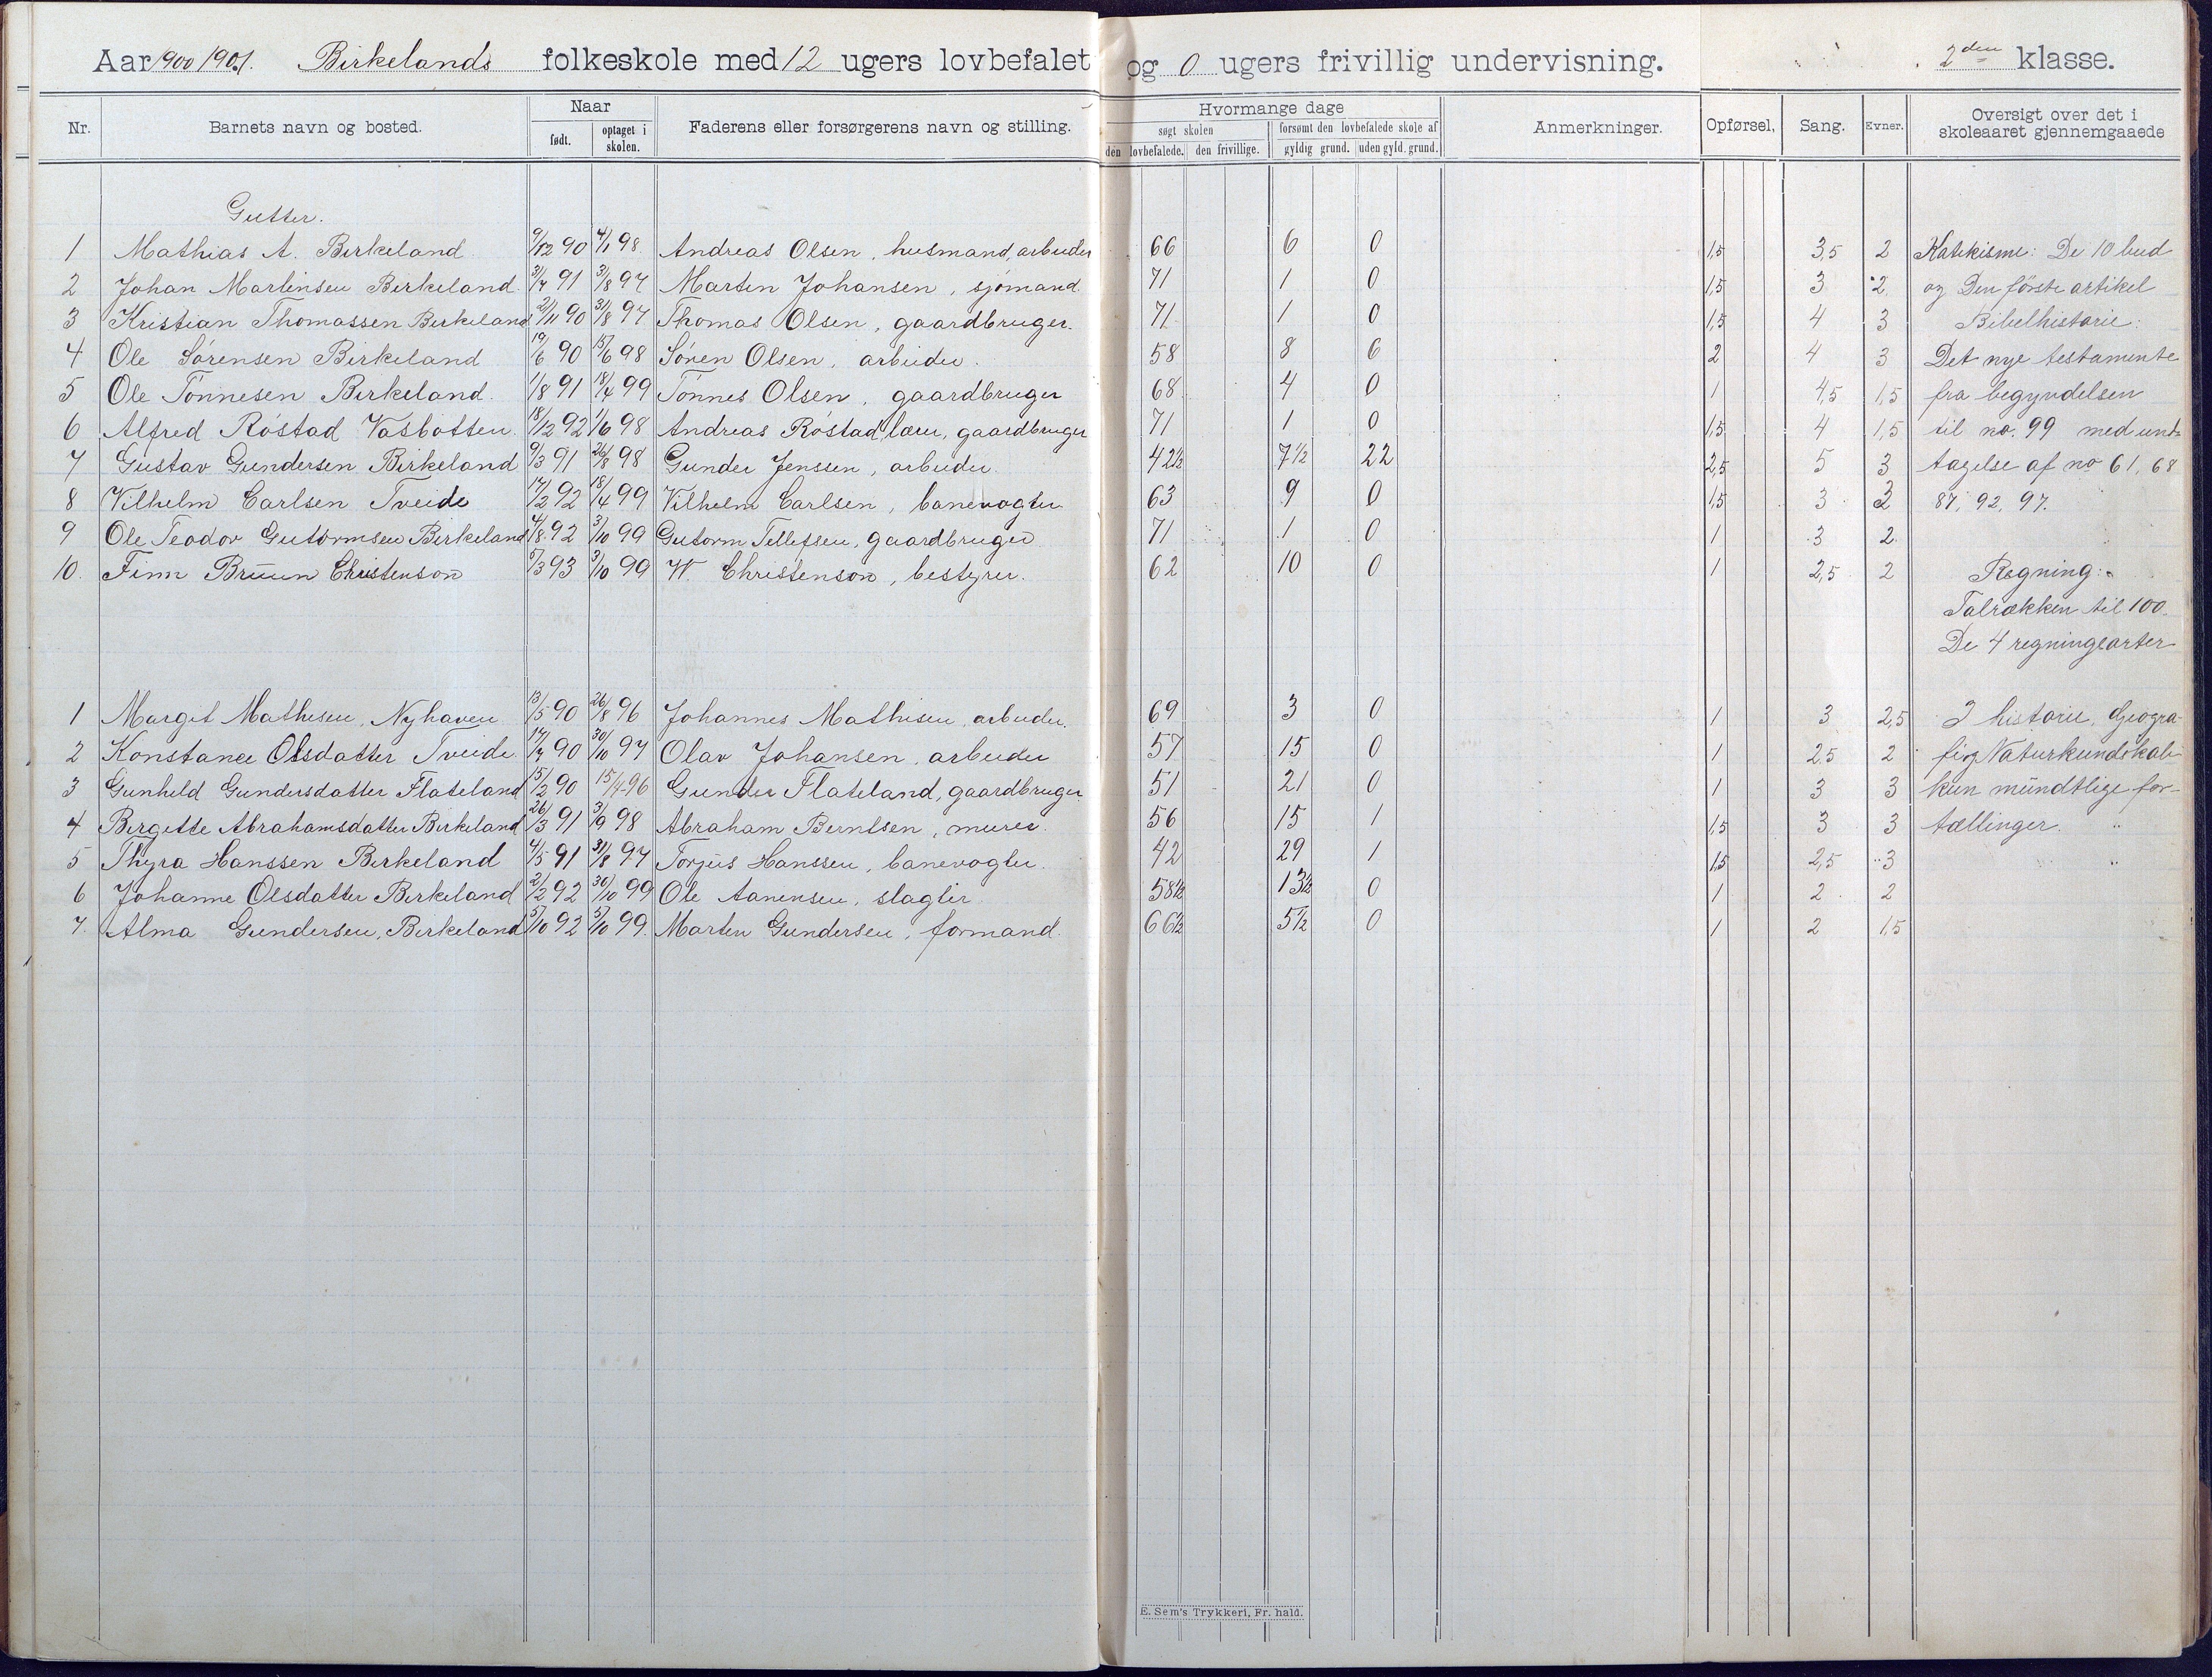 Aar 1900/1901. Birkelands folkeskole med 12 ugers lovbefalet og 0 ugers frivillig undervisning. 2den klasse.
Nr. Barnets navn og bosted. Naar født. optaget i skolen. Faderens eller forsørgerens navn og stilling. Hvormange dage søgt skolen den lovbefalede. den frivillige. forsømt den lovbefalede skole af gyldig grund. uden gyld. grund. Anmerkninger. Opførsel, Sang. Evner. Oversigt over det i skoleaaret gjennemgaaede
Gutter.
1 Mathias A. Birkeland 9/12 90 4/1 98 Andreas Olsen, husmand, arbeider 66 6 0 1,5 3,5 2 Katekisme: De 10 bud
2 Johan Martinsen Birkeland. 31/7 91 31/8 97 Marten Johansen, sjømand. 71 1 0 1,5 3 2 og Den første artikel
3 Kristian Thomassen Birkeland 21/11 90 31/8 97 Thomas Olsen, gaardbruger. 71 1 0 1,5 4 3 Bibelhistorie:
4 Ole Sørensen Birkeland 19/6 90 15/6 98 Søren Olsen, arbeider. 58 8 6 2 4 3 Det nye testamente
5 Ole Tønnesen Birkeland. 1/8 91 18/4 99 Tønnes Olsen, gaardbruger 68 4 0 1 4,5 1,5 fra begyndelsen
6 Alfred Røstad Vasbotten. 18/12 92 1/6 98 Andreas Røstad, lærer, gaardbruger 71 1 0 1,5 4 1,5 til no. 99 med und-
7 Gustav Gundersen Birkeland 9/3 91 26/8 98 Gunder Jenssen, arbeider. 42½ 7½ 22 2,5 5 3 tagelse af no 61, 68
8 Vilhelm Carlsen Tveide 17/2 92 18/4 99 Vilhelm Carlsen, banevogter 63 9 0 1,5 3 3 87, 92, 97.
9 Ole Teodor Gutormsen Birkeland 4/8 92 3/10 99 Gutorm Tellefsen, gaardbruger 71 1 0 1 3 2
10. Finn Bruun Christenson 5/3 93 3/10 99 W. Christenson, bestyrer. 62 10 0 1 2,5 2 Regning:
Talrækken til 100.
De 4 regningearter
1 Margit Mathisen, Nyhaven 13/5 90 26/8 96 Johannes Mathisen, arbeider. 69 3 0 1 3 2,5 I historie, Geogra-
2 Konstance Olsdatter Tveide 17/7 90 30/10 97 Olav Johansen, arbeider 57 15 0 1 2,5 2 fi og Naturkundskab
3 Gunhild Gundersdatter Flateland 15/2 90 15/4-96 Gunder Flateland, gaardbruger. 51 21 0 1 3 3 kun mundtlige for-
4 Birgitte Abrahamsdatter Birkeland 26/3 91 3/9 98 Abraham Berntsen, murer. 56 15 1 1,5 3 3 tællinger.
5 Thyra Hanssen Birkeland 4/5 91 31/8 97 Torjus Hanssen, banevogter. 42 29 1 1,5 2,5 3
6 Johanne Olsdatter Birkeland 2/2 92 30/10 99 Ole Aanensen, slagter 58½ 13½ 0 1 2 2
7. Alma Gundersen, Birkeland 5/10 92 5/10 99. Marten Gundersen, formand. 66½ 5½ 0 1 2 1,5
E. Sem's Trykkeri, Fr. hald.